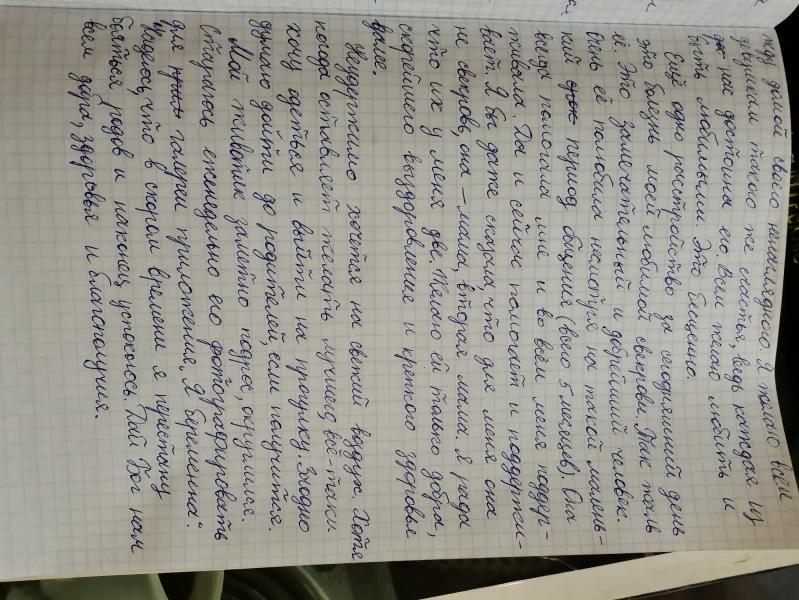 жду домой своего ненаглядного. Я желаю всем
девушкам такого же счастья, ведь каждая из
нас достойна его. Всем желаю любить и
быть любимыми. Это бесценно.
Ещё одно расстройство за сегодняшний день
это болезнь моей любимой свекрови. Так жаль
её. Это замечательный и добрейший человек.
Очень её полюбила несмотря на такой малень-
кий период общения (всего 5 месяцев). Она
всегда помогала мне и во всём меня поддер-
живала. Да и сейчас помогает и поддержи-
вает. Я бы даже сказала, что для меня она
не свекровь, она – мама, вторая мама. Я рада
что их у меня две. Желаю ей только добра,
скорейшего выздоровления и крепкого здоровья
далее.
Неудержимо хочется на свежий воздух. Хотя
погода оставляет желать лучшего, всё-таки
хочу одеться и выйти на прогулку. Заодно
думаю дойти до родителей, если получится.
Мой животик заметно подрос, округлился.
Стараюсь еженедельно его фотографировать
для галереи приложения "Я беременна".
Надеюсь, что в скором времени я перестану
бояться родов и наконец успокоюсь. Дай Бог нам
всем добра, здоровья и благополучия.